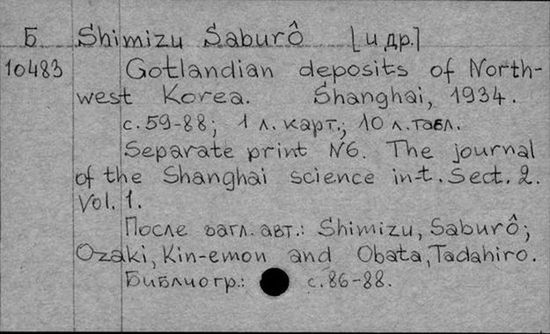 Б Shimizu Saburô [и др.]
10483 Gotlandian deposits of North-
west Korea. Shanghai, 1934.
с. 59-88; 1 л. карт.; 10 л. табл.
Separate print N6. The journal
of the Shanghai science in-t. Sect. 2.
Vol. 1.
После загл. авт.: Shimizu, Saburô;
Ozaki, Kin-emon and Obata, Tadahiro.
Библиогр.: с. 86-88.